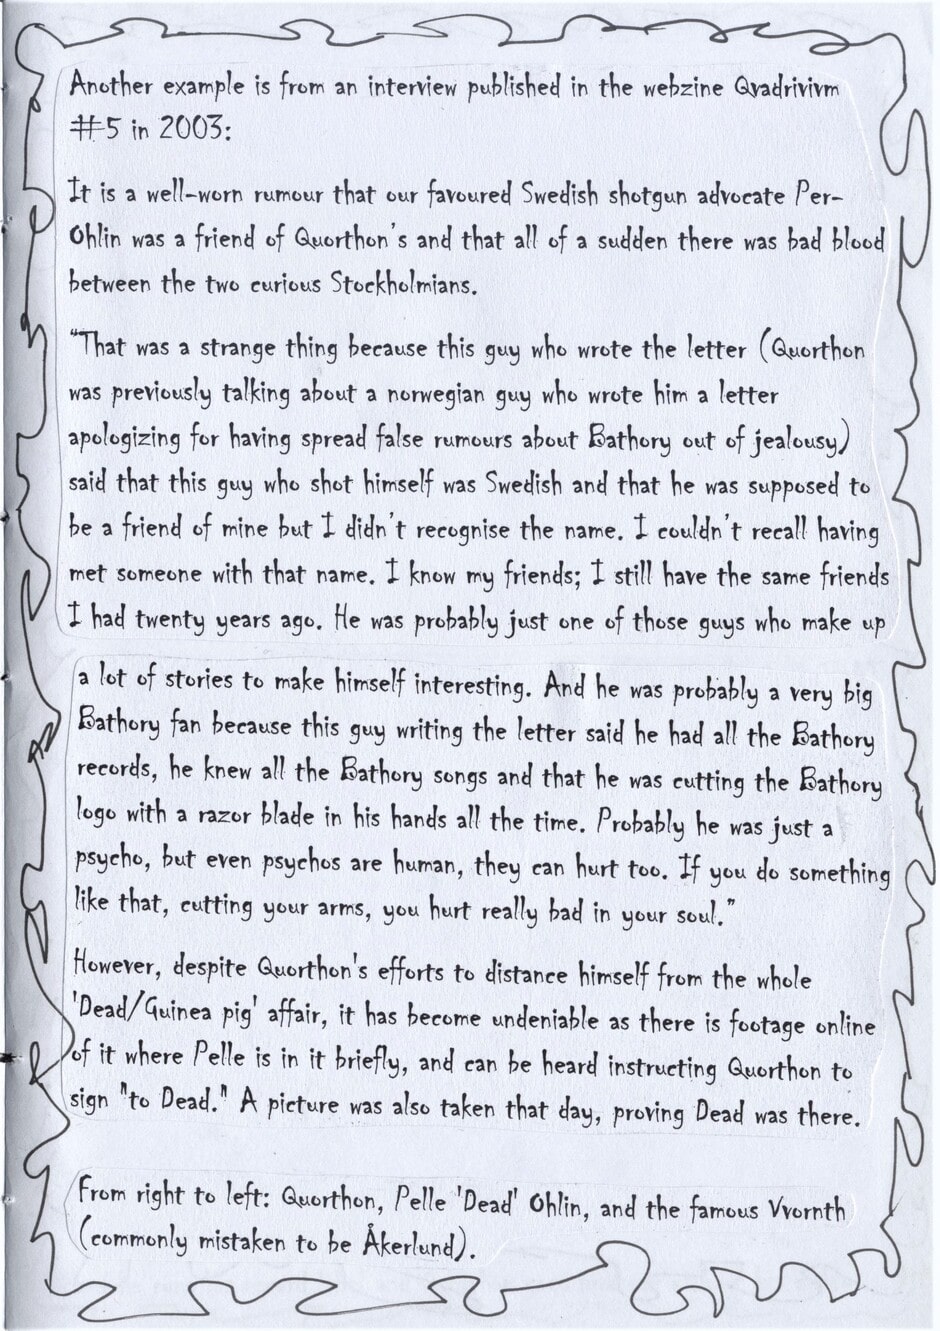 Another example is from an interview published in the webzine Qvadrivivm
#5 in 2003:
It is a well-worn rumour that our favoured Swedish shotgun advocate Per-
Ohlin was a friend of Quorthon's and that all of a sudden there was bad blood
between the two curious Stockholmians.
"That was a strange thing because this guy who wrote the letter (Quorthon
was previously talking about a norwegian guy who wrote him a letter
apologizing for having spread false rumours about Bathory out of jealousy)
said that this guy who shot himself was Swedish and that he was supposed to
be a friend of mine but I didn't recognise the name. I couldn't recall having
met someone with that name. I know my friends; I still have the same friends
I had twenty years ago. He was probably just one of those guys who make up
a lot of stories to make himself interesting. And he was probably a very big
Bathory fan because this guy writing the letter said he had all the Bathory
records, he knew all the Bathory songs and that he was cutting the Bathory
logo with a razor blade in his hands all the time. Probably he was just a
psycho, but even psychos are human, they can hurt too. If you do something
like that, cutting your arms, you hurt really bad in your soul."
However, despite Quorthon's efforts to distance himself from the whole
'Dead/Guinea pig' affair, it has become undeniable as there is footage online
of it where Pelle is in it briefly, and can be heard instructing Quorthon to
sign "to Dead." A picture was also taken that day, proving Dead was there.
From right to left: Quorthon, Pelle 'Dead' Ohlin, and the famous Vvornth
(commonly mistaken to be Åkerlund).